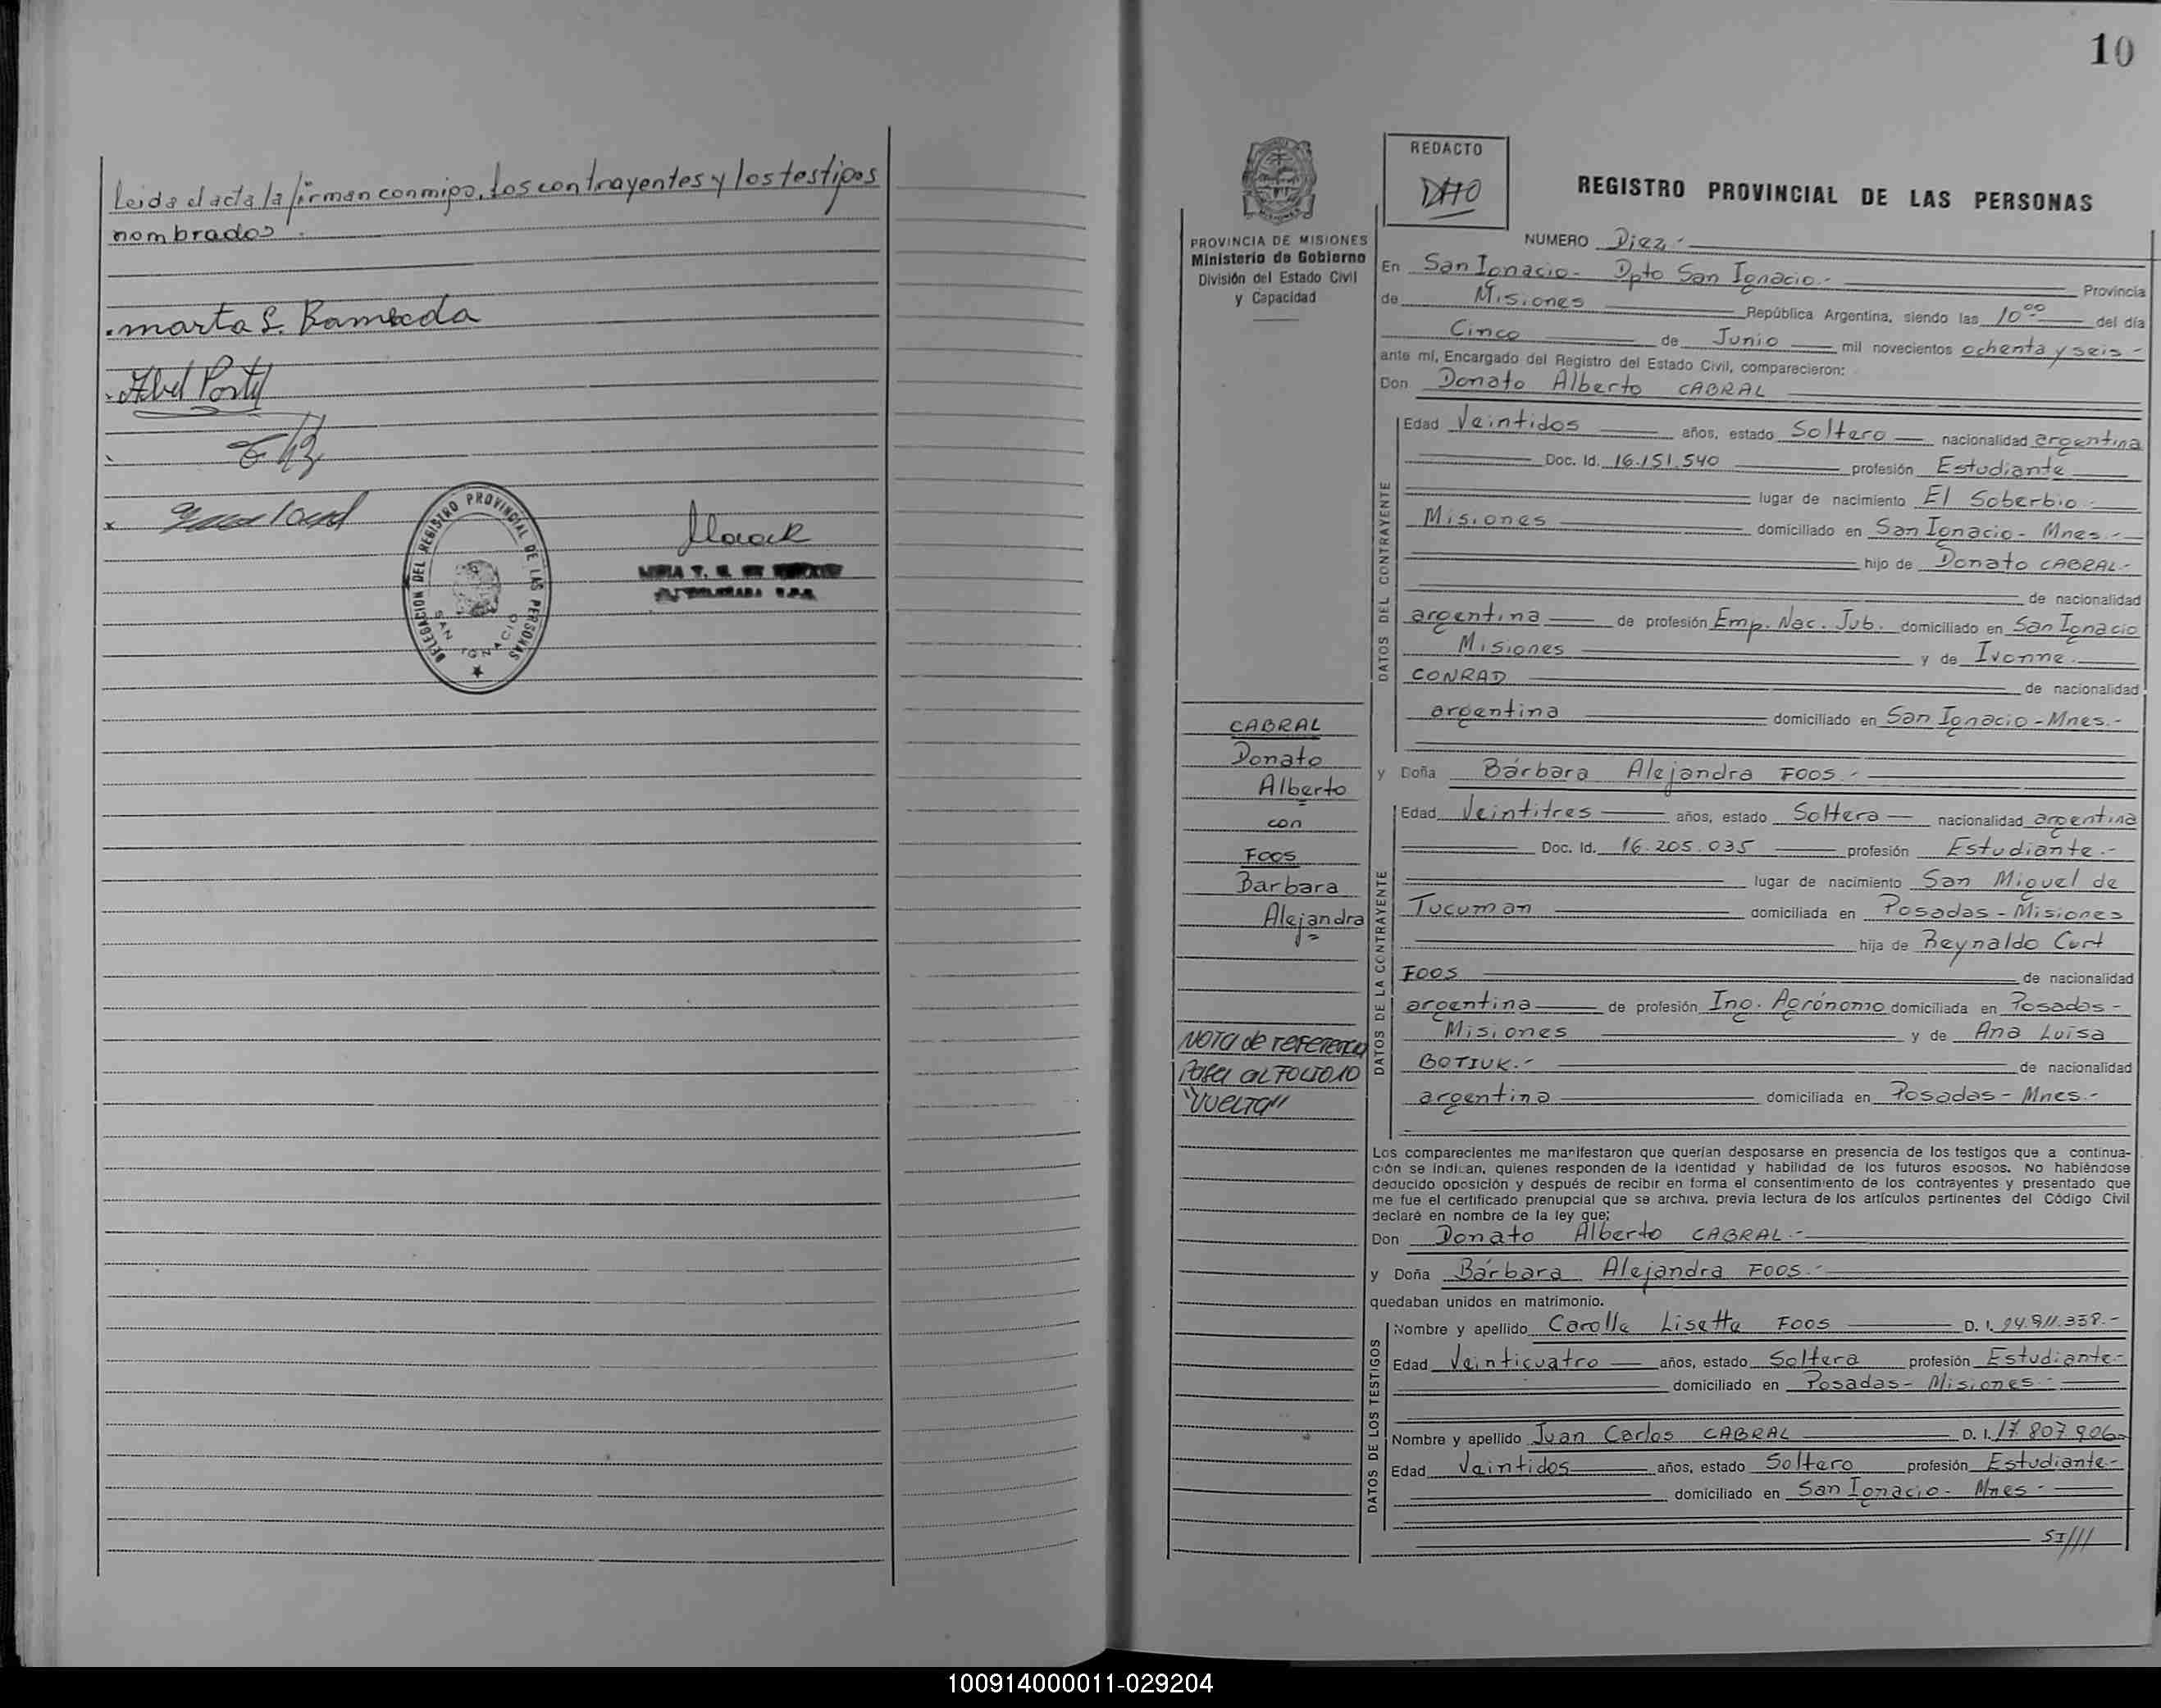 Leida el acta la firman conmigo, los contrayentes y los testigos
nombrados.
marta S.
Abel
DELEGACION DEL REGISTRO PROVINCIAL DE LAS PERSONAS
SAN IGNACIO
10
REDACTO
REGISTRO PROVINCIAL DE LAS PERSONAS
PROVINCIA DE MISIONES
Ministerio de Gobierno
División del Estado Civil
y Capacidad
NUMERO Diez.-
En San Ignacio- Dpto San Ignacio.- Provincia
de Misiones República Argentina, siendo las 10:00 del día
Cinco de Junio mil novecientos ochenta y seis-
ante mí, Encargado del Registro del Estado Civil, comparecieron:
Don Donato Alberto CABRAL
DATOS DEL CONTRAYENTE
Edad Veintidos años, estado Soltero nacionalidad argentina
Doc. Id. 16.151.540 profesión Estudiante
lugar de nacimiento El Soberbio.-
Misiones domiciliado en San Ignacio- Mnes.-
hijo de Donato CABRAL.-
de nacionalidad
argentina de profesión Emp. Nac. Jub. domiciliado en San Ignacio
Misiones y de Ivonne.
CONRAD de nacionalidad
argentina domiciliado en San Ignacio-Mnes.-
y Doña Bárbara Alejandra FOOS.-
DATOS DE LA CONTRAYENTE
Edad Veintitres años, estado Soltera nacionalidad argentina
Doc. Id. 16.205.035 profesión Estudiante.-
lugar de nacimiento San Miguel de
Tucuman domiciliada en Posadas-Misiones
hija de Reynaldo Curt
FOOS de nacionalidad
argentina de profesión Ing. Agrónomo domiciliada en Posadas-
Misiones y de Ana Luisa
BOTIUK.- de nacionalidad
argentina domiciliada en Posadas- Mnes.-
CABRAL
Donato
Alberto
con
FOOS
Barbara
Alejandra
NOTA de referencia
Pasa al FOLIO 10
"VUELTA"
Los comparecientes me manifestaron que querían desposarse en presencia de los testigos que a continua-
ción se indican, quienes responden de la identidad y habilidad de los futuros esposos. No habiéndose
deducido oposición y después de recibir en forma el consentimiento de los contrayentes y presentado que
me fue el certificado prenupcial que se archiva, previa lectura de los artículos pertinentes del Código Civil
declaré en nombre de la ley que:
Don Donato Alberto CABRAL.-
y Doña Bárbara Alejandra FOOS.-
quedaban unidos en matrimonio.
DATOS DE LOS TESTIGOS
Nombre y apellido Carolle Lisette FOOS D. I.
Edad Veinticuatro años, estado Soltera profesión Estudiante-
domiciliado en Posadas- Misiones.-
Nombre y apellido Juan Carlos CABRAL D. I. 17.807.906-
Edad Veintidos años, estado Soltero profesión Estudiante-
domiciliado en San Ignacio- Mnes.-
100914000011-029204